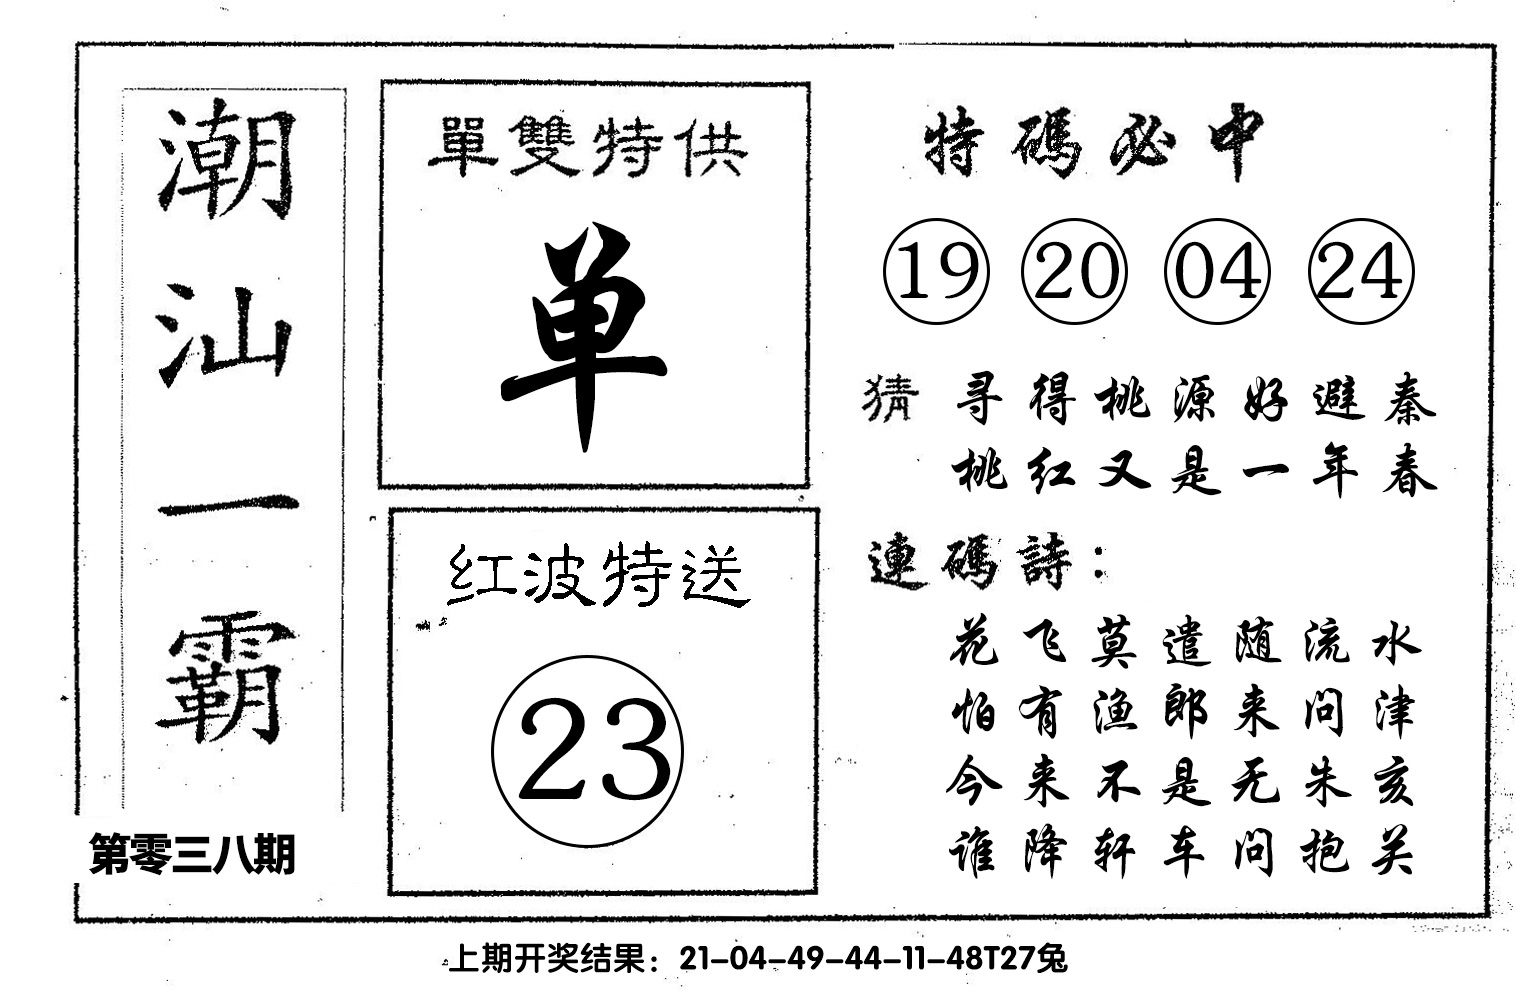 潮汕一霸
第零三八期
單雙特供
单
红波特送
23
特碼必中
19 20 04 24
猜 寻得桃源好避秦
桃红又是一年春
連碼詩：
花飞莫遣随流水
怕有渔郎来问津
今来不是无朱亥
谁降轩车问抱关
上期开奖结果：21-04-49-44-11-48T27兔